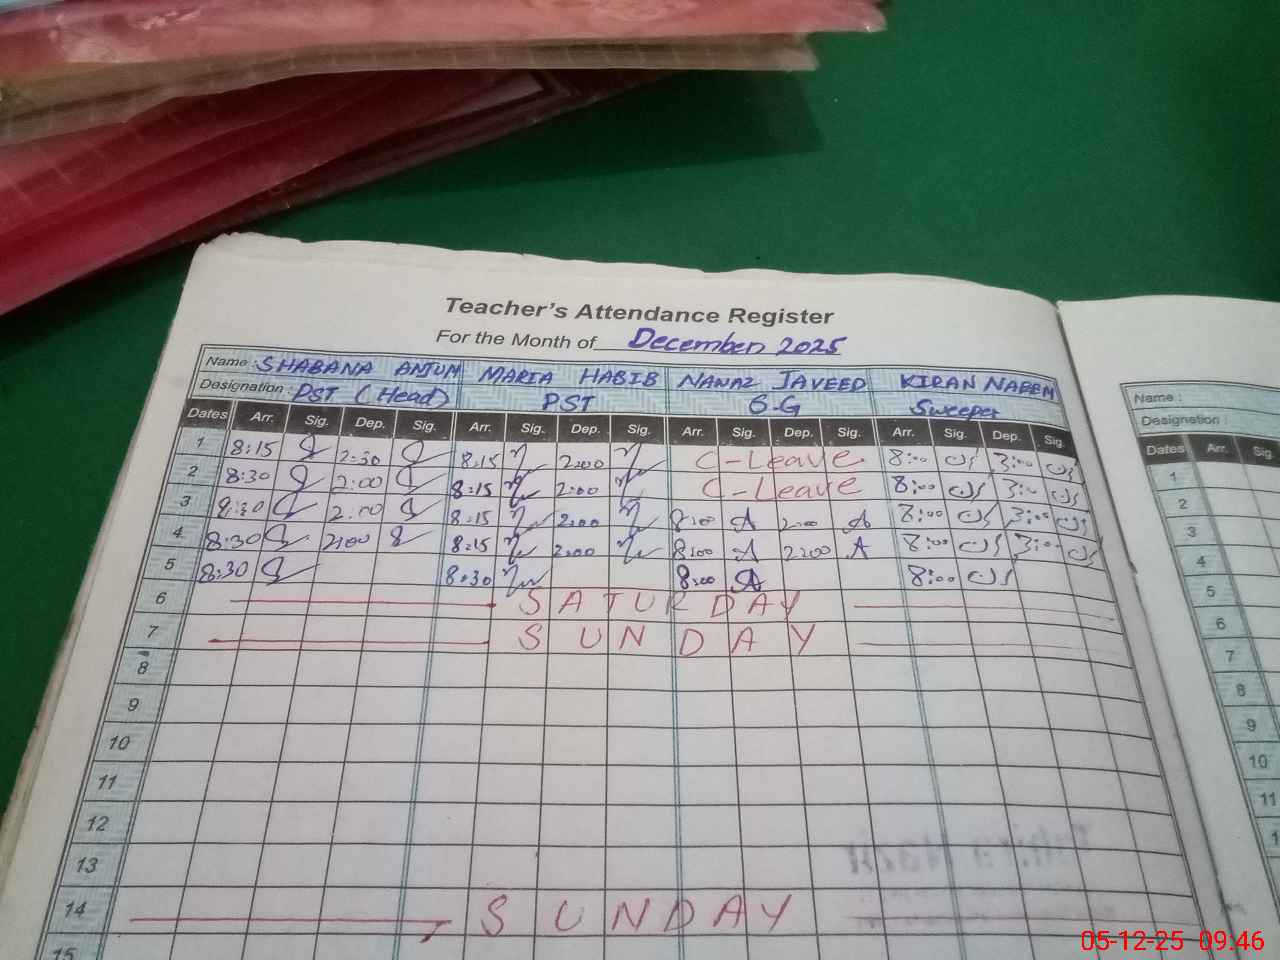 Teacher's Attendance Register
For the Month of December 2025
Name : SHABANA ANJUM MARIA HABIB NANAZ JAVEED KIRAN NAEEM
Designation : PST (Head) PST S.G Sweeper
Dates Arr. Sig. Dep. Sig. Arr. Sig. Dep. Sig. Arr. Sig. Dep. Sig. Arr. Sig. Dep. Sig.
1 8:15 2:30 8:15 2:00 C-Leave 8:00 3:00
2 8:30 2:00 8:15 2:00 C-Leave 8:00 3:00
3 8:30 2:00 8:15 2:00 8:00 A 2:00 A 8:00 3:00
4 8:30 2:00 8:15 2:00 8:00 A 2:00 A 8:00 3:00
5 8:30 8:30 8:00 A 8:00
6 SATURDAY
7 SUNDAY
8
9
10
11
12
13
14 SUNDAY
15
Name :
Designation
Dates Arr. Sig.
1
2
3
4
5
6
7
8
9
10
11
05-12-25 09:46